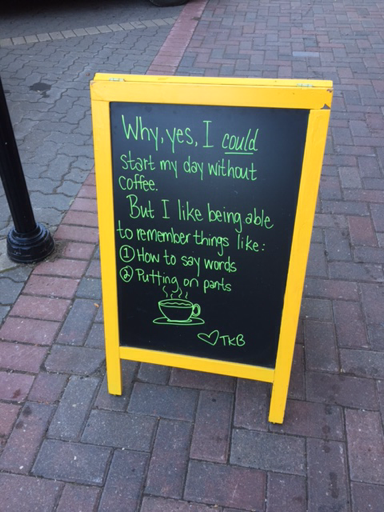 Why, yes, I could
start my day without
coffee.
But I like being able
to remember things like:
① How to say words
② Putting on pants
♡TKB